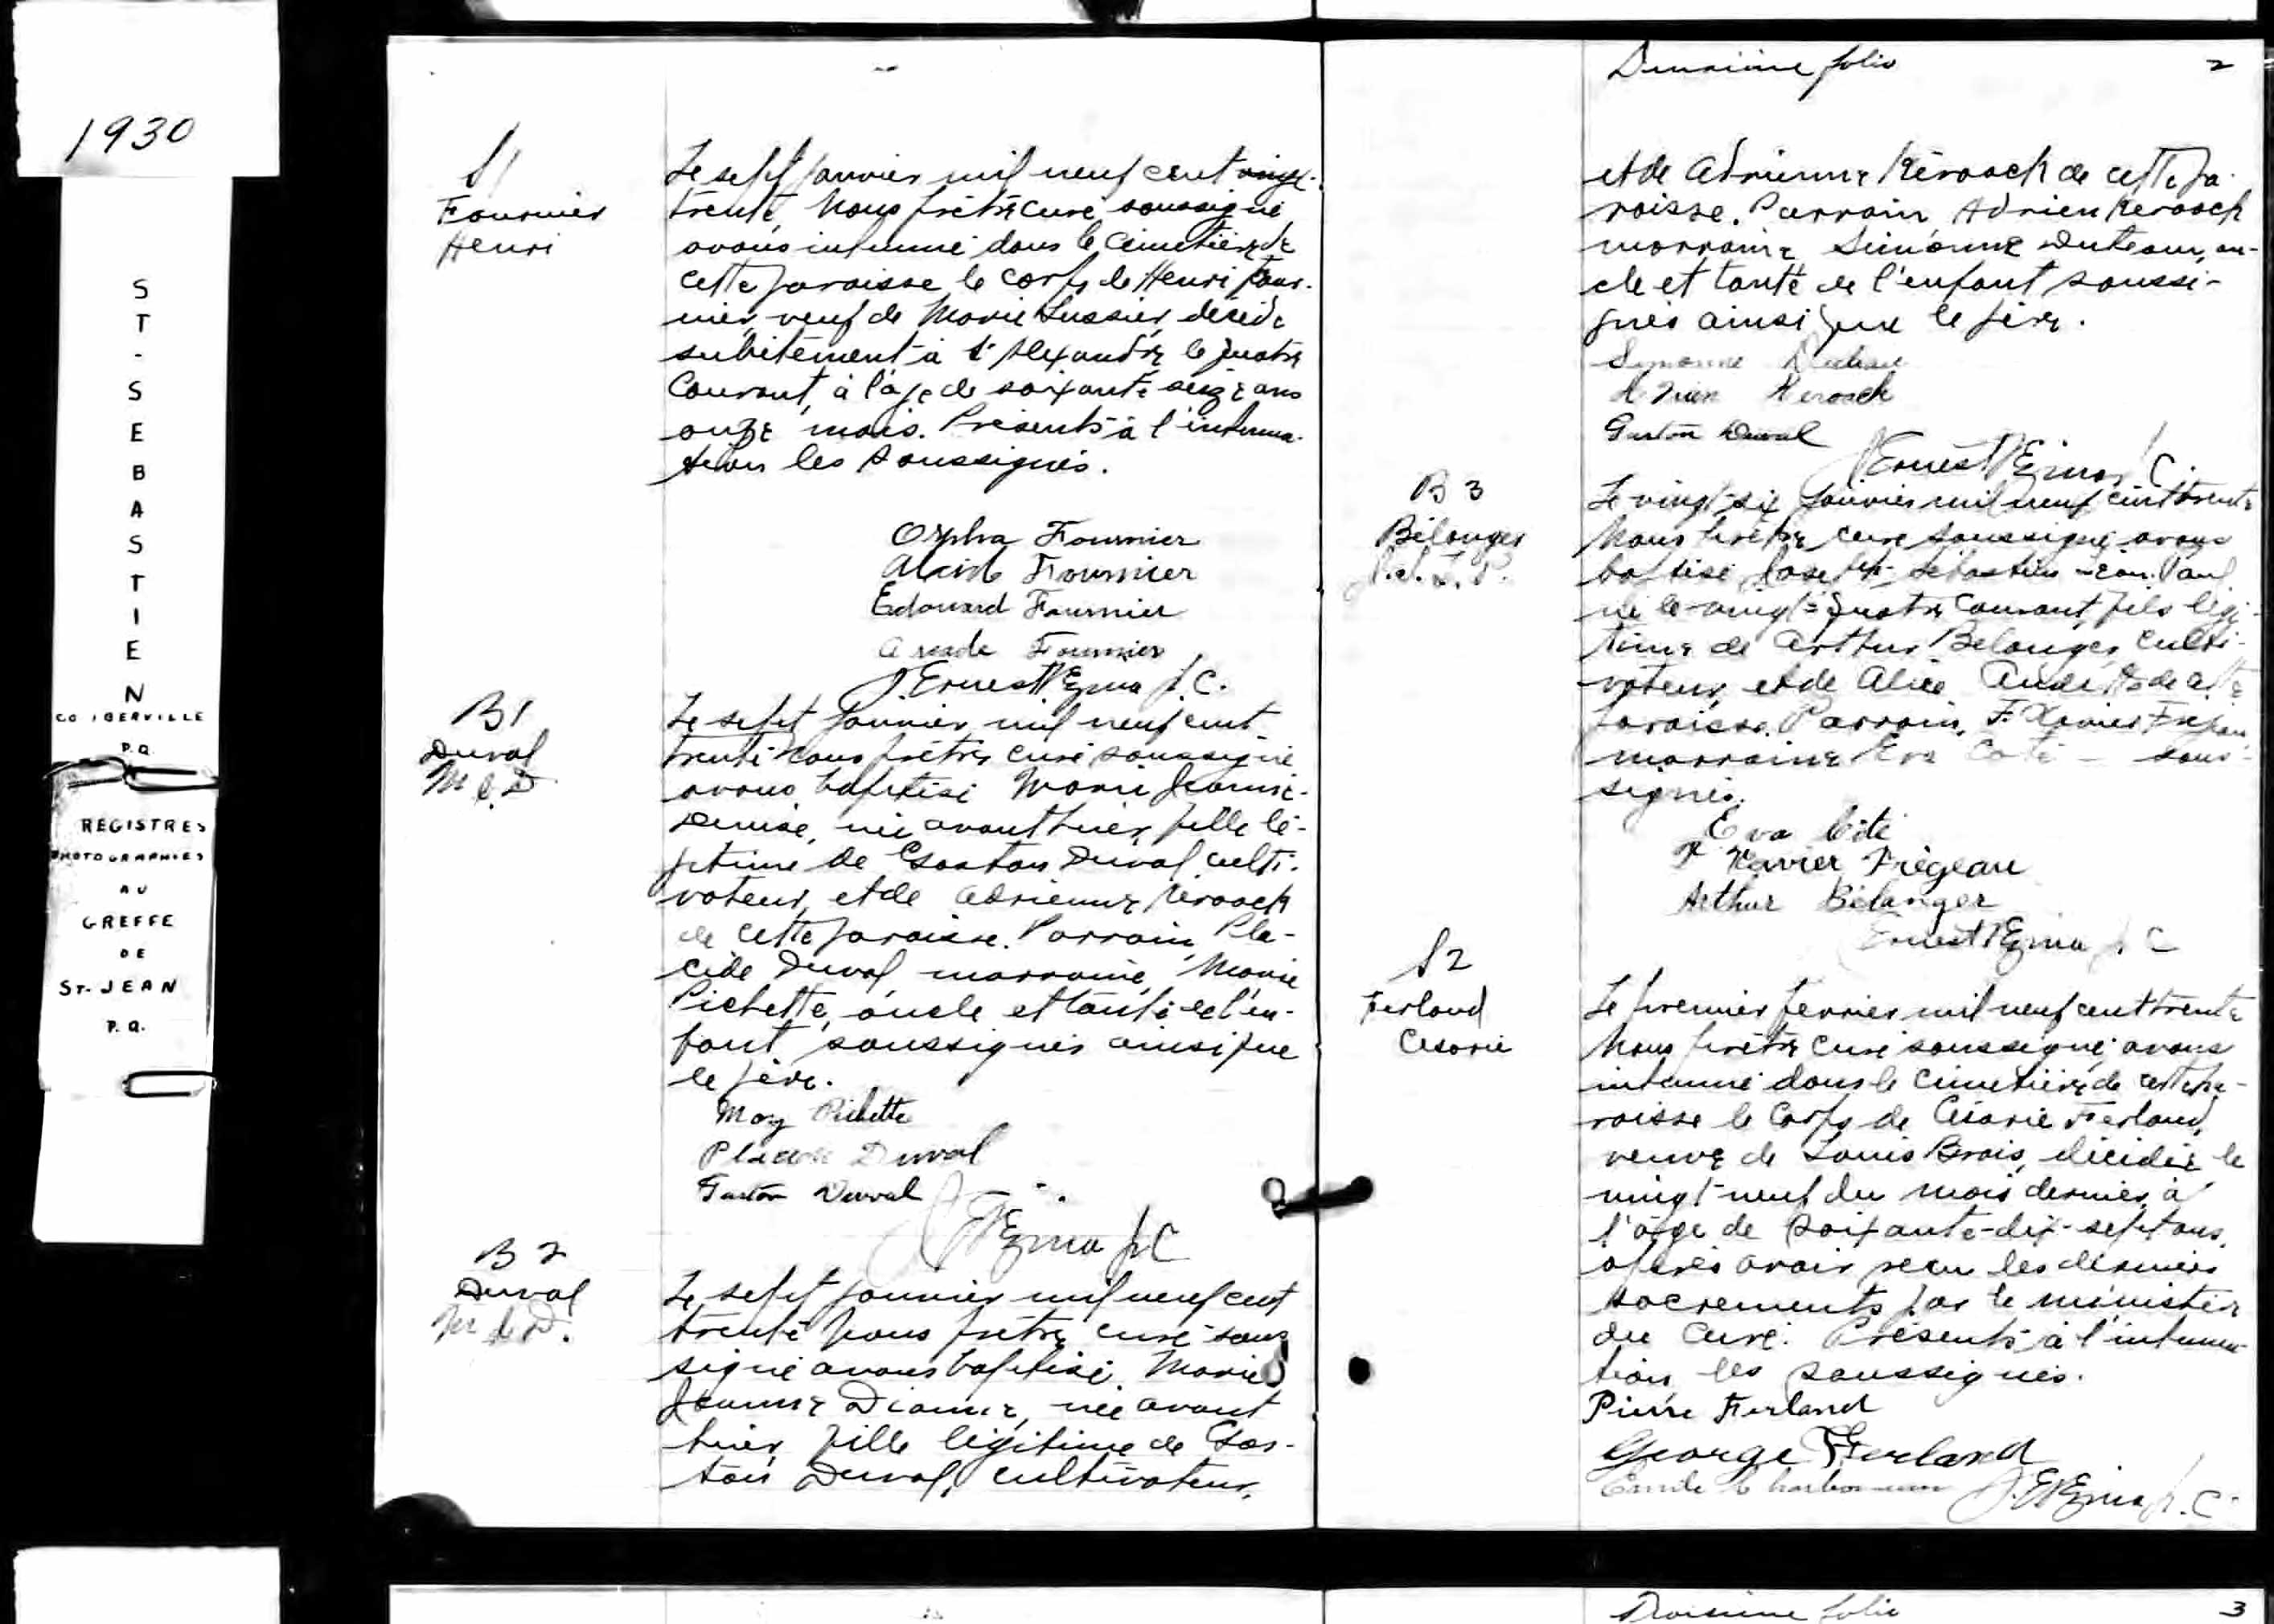 1930
ST-SEBASTIEN
CO IBERVILLE
P.Q.
REGISTRES
PHOTOGRAPHIES
AU
GREFFE
DE
ST-JEAN
P.Q.
S1
Fournier
Henri
Le sept janvier mil neuf cent vingt-
trente, Nous prêtre curé soussigné
avons inhumé dans le cimetière de
cette paroisse le corps de Henri Four-
nier, veuf de Marie Lussier, décédé
subitement à St Alexandre le quatre
Courant, à l'âge de soixante seize ans
onze mois. Présents à l'inhuma-
tion les soussignés.
Orpha Fournier
Alcide Fournier
Edouard Fournier
Fournier
J. Ernest p. C.
B1
Duval
M J. D
Le sept janvier mil neuf cent
trente nous prêtre curé soussigné
avons baptisé Marie Jeanne-
Denise, née avant hier, fille lé-
gitime de Gaston Duval culti-
vateur, et de Adrienne Kéroack
de cette paroisse. Parrain, Pla-
cide Duval, marraine, Marie
Pichette, oncle et tante de l'en-
fant soussignés ainsi que
le père.
May Pichette
Placide Duval
Gaston Duval
p. C
B 2
Duval
M J. D.
Le sept janvier mil neuf cent
trente Nous prêtre curé sous
signé avons baptisé Marie
Jeanne Dianne, née avant
hier, fille légitime de Gas-
ton Duval, cultivateur,
Deuxième folio 2
et de Adrienne Kéroack de cette pa-
roisse. Parrain Adrien Keroack
marraine Simonne Duteau, on-
cle et tante de l'enfant soussi-
gnés ainsi que le père.
Simonne Duteau
Adrien Keroack
Gaston Duval
J Ernest p. C.
B 3
Bélanger
J. S. J. P.
Le vingt-six janvier mil neuf cent trente
Nous prêtre curé soussigné avons
baptisé Joseph-Sébastien-Jean-Paul
né le vingt-quatre courant, fils légi-
time de Arthur Bélanger, culti-
vateur, et de Alice de cette
paroisse. Parrain, F. Xavier Frégeau,
marraine Eva Coté - sous-
signés.
Eva Côté
F Xavier Frégeau
Arthur Bélanger
Ernest p. C
S2
Ferland
Césarie
Le premier février mil neuf cent trente
Nous prêtre curé soussigné avons
inhumé dans le cimetière de cette pa-
roisse le corps de Césarie Ferland,
veuve de Louis Brais, décédée le
vingt-neuf du mois dernier, à
l'âge de soixante-dix-sept ans,
après avoir reçu les derniers
sacrements par le ministère
du curé. Présents à l'inhuma-
tion, les soussignés.
Pierre Ferland
George Ferland
Emile Charbonneau
p. C.
Troisième folio 3